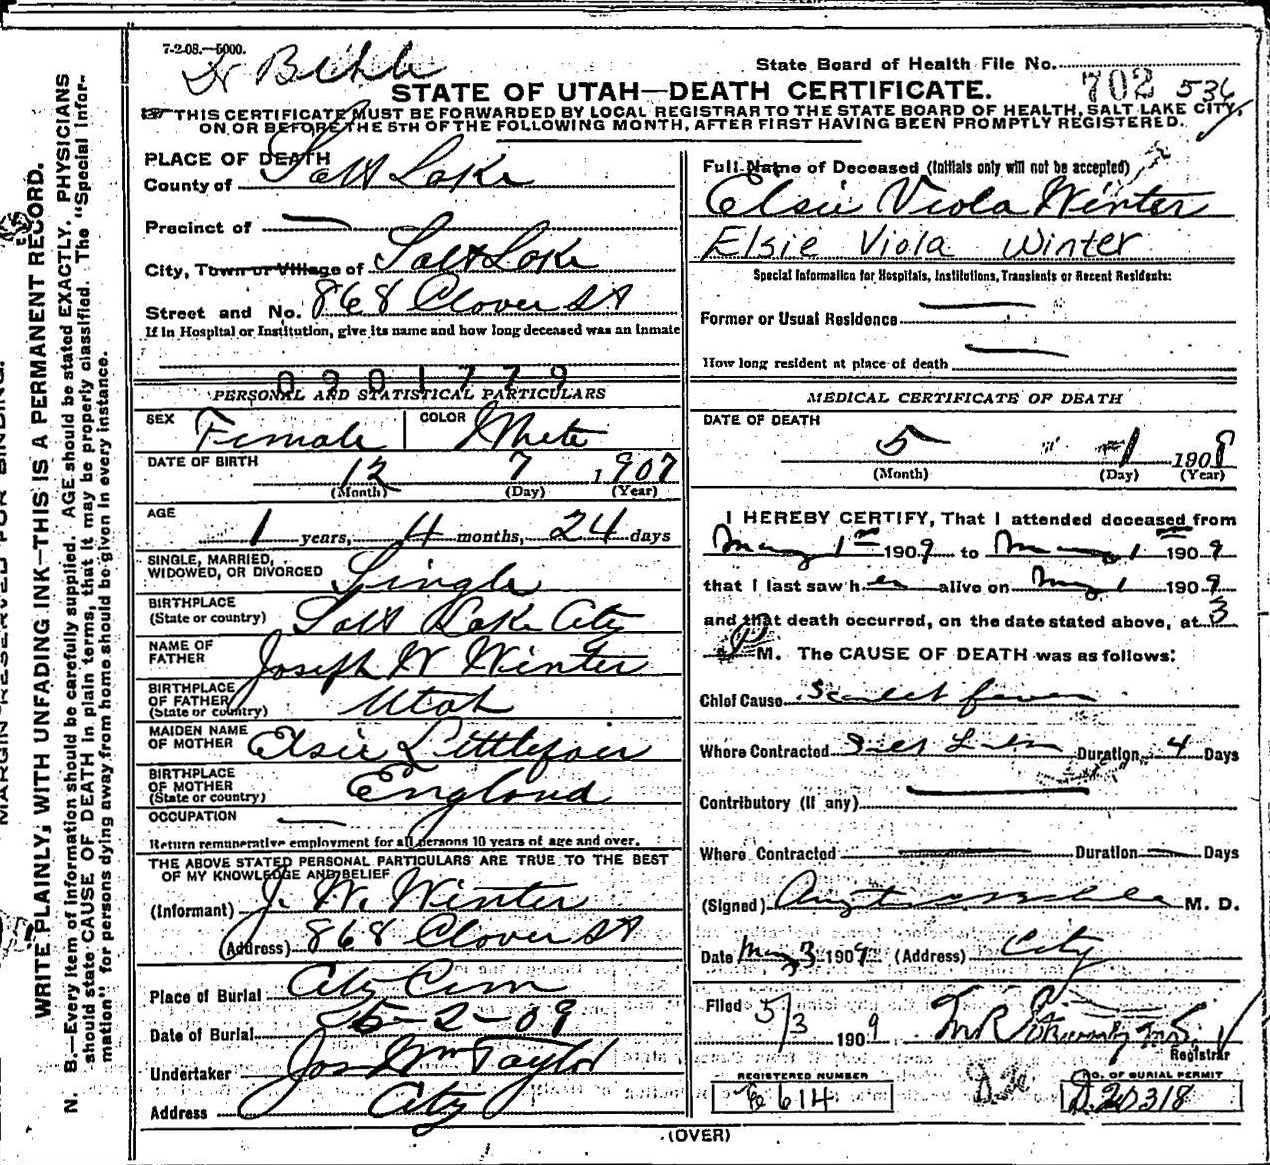 7-2-08.—5000.
Dr
State Board of Health File No. 702 536
STATE OF UTAH—DEATH CERTIFICATE.
THIS CERTIFICATE MUST BE FORWARDED BY LOCAL REGISTRAR TO THE STATE BOARD OF HEALTH, SALT LAKE CITY,
ON OR BEFORE THE 5TH OF THE FOLLOWING MONTH, AFTER FIRST HAVING BEEN PROMPTLY REGISTERED.
PLACE OF DEATH
County of Salt Lake
Precinct of —
City, Town or Village of Salt Lake
Street and No. 868 Clover St
If in Hospital or Institution, give its name and how long deceased was an inmate
0901779
PERSONAL AND STATISTICAL PARTICULARS
SEX Female COLOR White
DATE OF BIRTH 12 7 1907
(Month) (Day) (Year)
AGE 1 years, 4 months, 24 days
SINGLE, MARRIED,
WIDOWED, OR DIVORCED Single
BIRTHPLACE
(State or country) Salt Lake City
NAME OF
FATHER Joseph W Winter
BIRTHPLACE
OF FATHER
(State or country) Utah
MAIDEN NAME
OF MOTHER Elsie
BIRTHPLACE
OF MOTHER
(State or country) England
OCCUPATION —
Return remunerative employment for all persons 10 years of age and over.
THE ABOVE STATED PERSONAL PARTICULARS ARE TRUE TO THE BEST
OF MY KNOWLEDGE AND BELIEF
(Informant) J. W. Winter
(Address) 868 Clover St
Place of Burial City Cem
Date of Burial 5-2-09
Undertaker Jos Wm Taylor
Address City
Full Name of Deceased (Initials only will not be accepted)
Elsie Viola Winter
Elsie Viola Winter
Special Information for Hospitals, Institutions, Transients or Recent Residents:
Former or Usual Residence —
How long resident at place of death —
MEDICAL CERTIFICATE OF DEATH
DATE OF DEATH
5 1 1909
(Month) (Day) (Year)
I HEREBY CERTIFY, That I attended deceased from
May 1st 1909 to May 1 1909
that I last saw her alive on May 1 1909
and that death occurred, on the date stated above, at 3
P M. The CAUSE OF DEATH was as follows:
Chief Cause Scarlet fever
Where Contracted Salt Lake Duration 4 Days
Contributory (if any) —
Where Contracted — Duration — Days
(Signed) M. D.
Date May 3 1909 (Address) City
Filed 5/3 1909
Registrar
REGISTERED NUMBER
614
NO. OF BURIAL PERMIT
D.20318
(OVER)
MARGIN RESERVED FOR BINDING.
WRITE PLAINLY, WITH UNFADING INK—THIS IS A PERMANENT RECORD.
N. B.—Every item of information should be carefully supplied. AGE should be stated EXACTLY. PHYSICIANS
should state CAUSE OF DEATH in plain terms, that it may be properly classified. The "Special Infor-
mation" for persons dying away from home should be given in every instance.